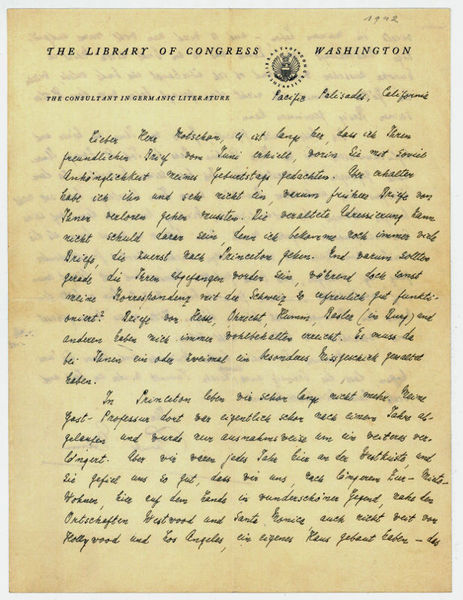 1942
THE LIBRARY OF CONGRESS WASHINGTON
THE CONSULTANT IN GERMANIC LITERATURE
Pacific Palisades, California
Lieber Herr Motschan, es ist lange her, dass ich Ihren
freundlichen Brief vom Juni erhielt, worin Sie mit soviel
Anhänglichkeit meines Geburtstags gedachten. Aber erhalten
habe ich ihn und sehe nicht ein, warum frühere Briefe von
Ihnen verloren gehen mussten. Die veraltete Adressierung kann
nicht schuld daran sein, denn ich bekomme noch immer viele
Briefe, die zuerst nach Princeton gehen. Und warum sollten
gerade die Ihren abgefangen worden sein, während doch sonst
meine Korrespondenz mit der Schweiz so erfreulich gut funkti-
oniert? Briefe von Hesse, Oprecht, Basler (in Burg) und
anderen haben mich immer wohlbehalten erreicht. Es muss da
bei Ihnen ein oder zweimal ein besonderes Missgeschick gewaltet
haben.
In Princeton leben wir schon lange nicht mehr. Meine
Gast-Professur dort war eigentlich schon nach einem Jahre ab-
gelaufen und wurde nur ausnahmsweise um ein weiteres ver-
längert. Aber wir waren jedes Jahr hier an der Westküste, und
sie gefiel uns so gut, dass wir uns, nach längerem hier-Miete-
Wohnen, hier auf dem Lande in wunderschöner Gegend, nahe den
Ortschaften Westwood und Santa Monica, auch nicht weit von
Hollywood und Los Angeles, ein eigenes Haus gebaut haben – das